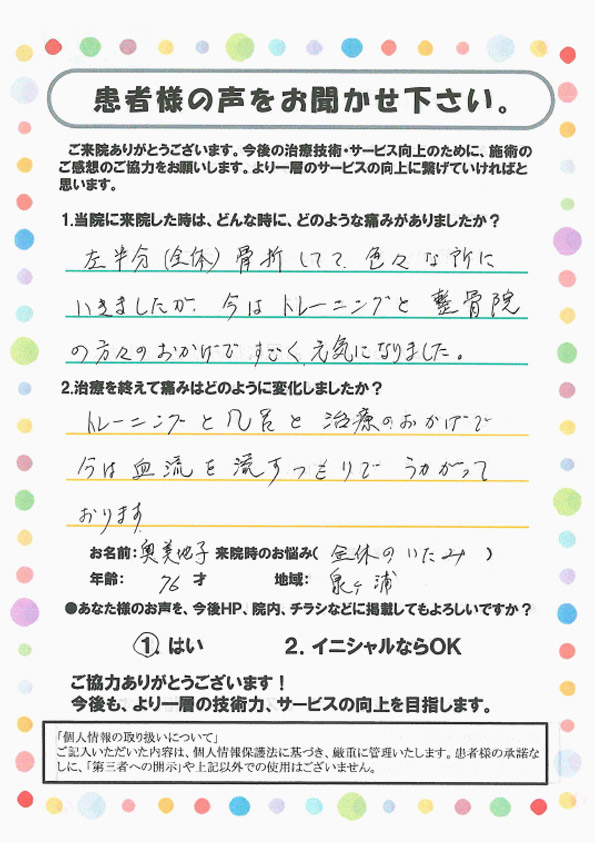 患者様の声をお聞かせ下さい。
ご来院ありがとうございます。今後の治療技術・サービス向上のために、施術の
ご感想のご協力をお願いします。より一層のサービスの向上に繋げていければと
思います。
1.当院に来院した時は、どんな時に、どのような痛みがありましたか？
左半分(全体)骨折してて、色々な所に
いきましたが、今はトレーニングと整骨院
の方々のおかげですごく元気になりました。
2.治療を終えて痛みはどのように変化しましたか？
トレーニングと風呂と治療のおかげで
今は血流を流すつもりでうかがって
おります
お名前：奥美地子 来院時のお悩み( 全体のいたみ )
年齢： 76 才 地域： 泉ヶ浦
●あなた様のお声を、今後HP、院内、チラシなどに掲載してもよろしいですか？
1. はい 2. イニシャルならOK
ご協力ありがとうございます！
今後も、より一層の技術力、サービスの向上を目指します。
「個人情報の取り扱いについて」
ご記入いただいた内容は、個人情報保護法に基づき、厳重に管理いたします。患者様の承諾な
しに、「第三者への開示」や上記以外での使用はございません。